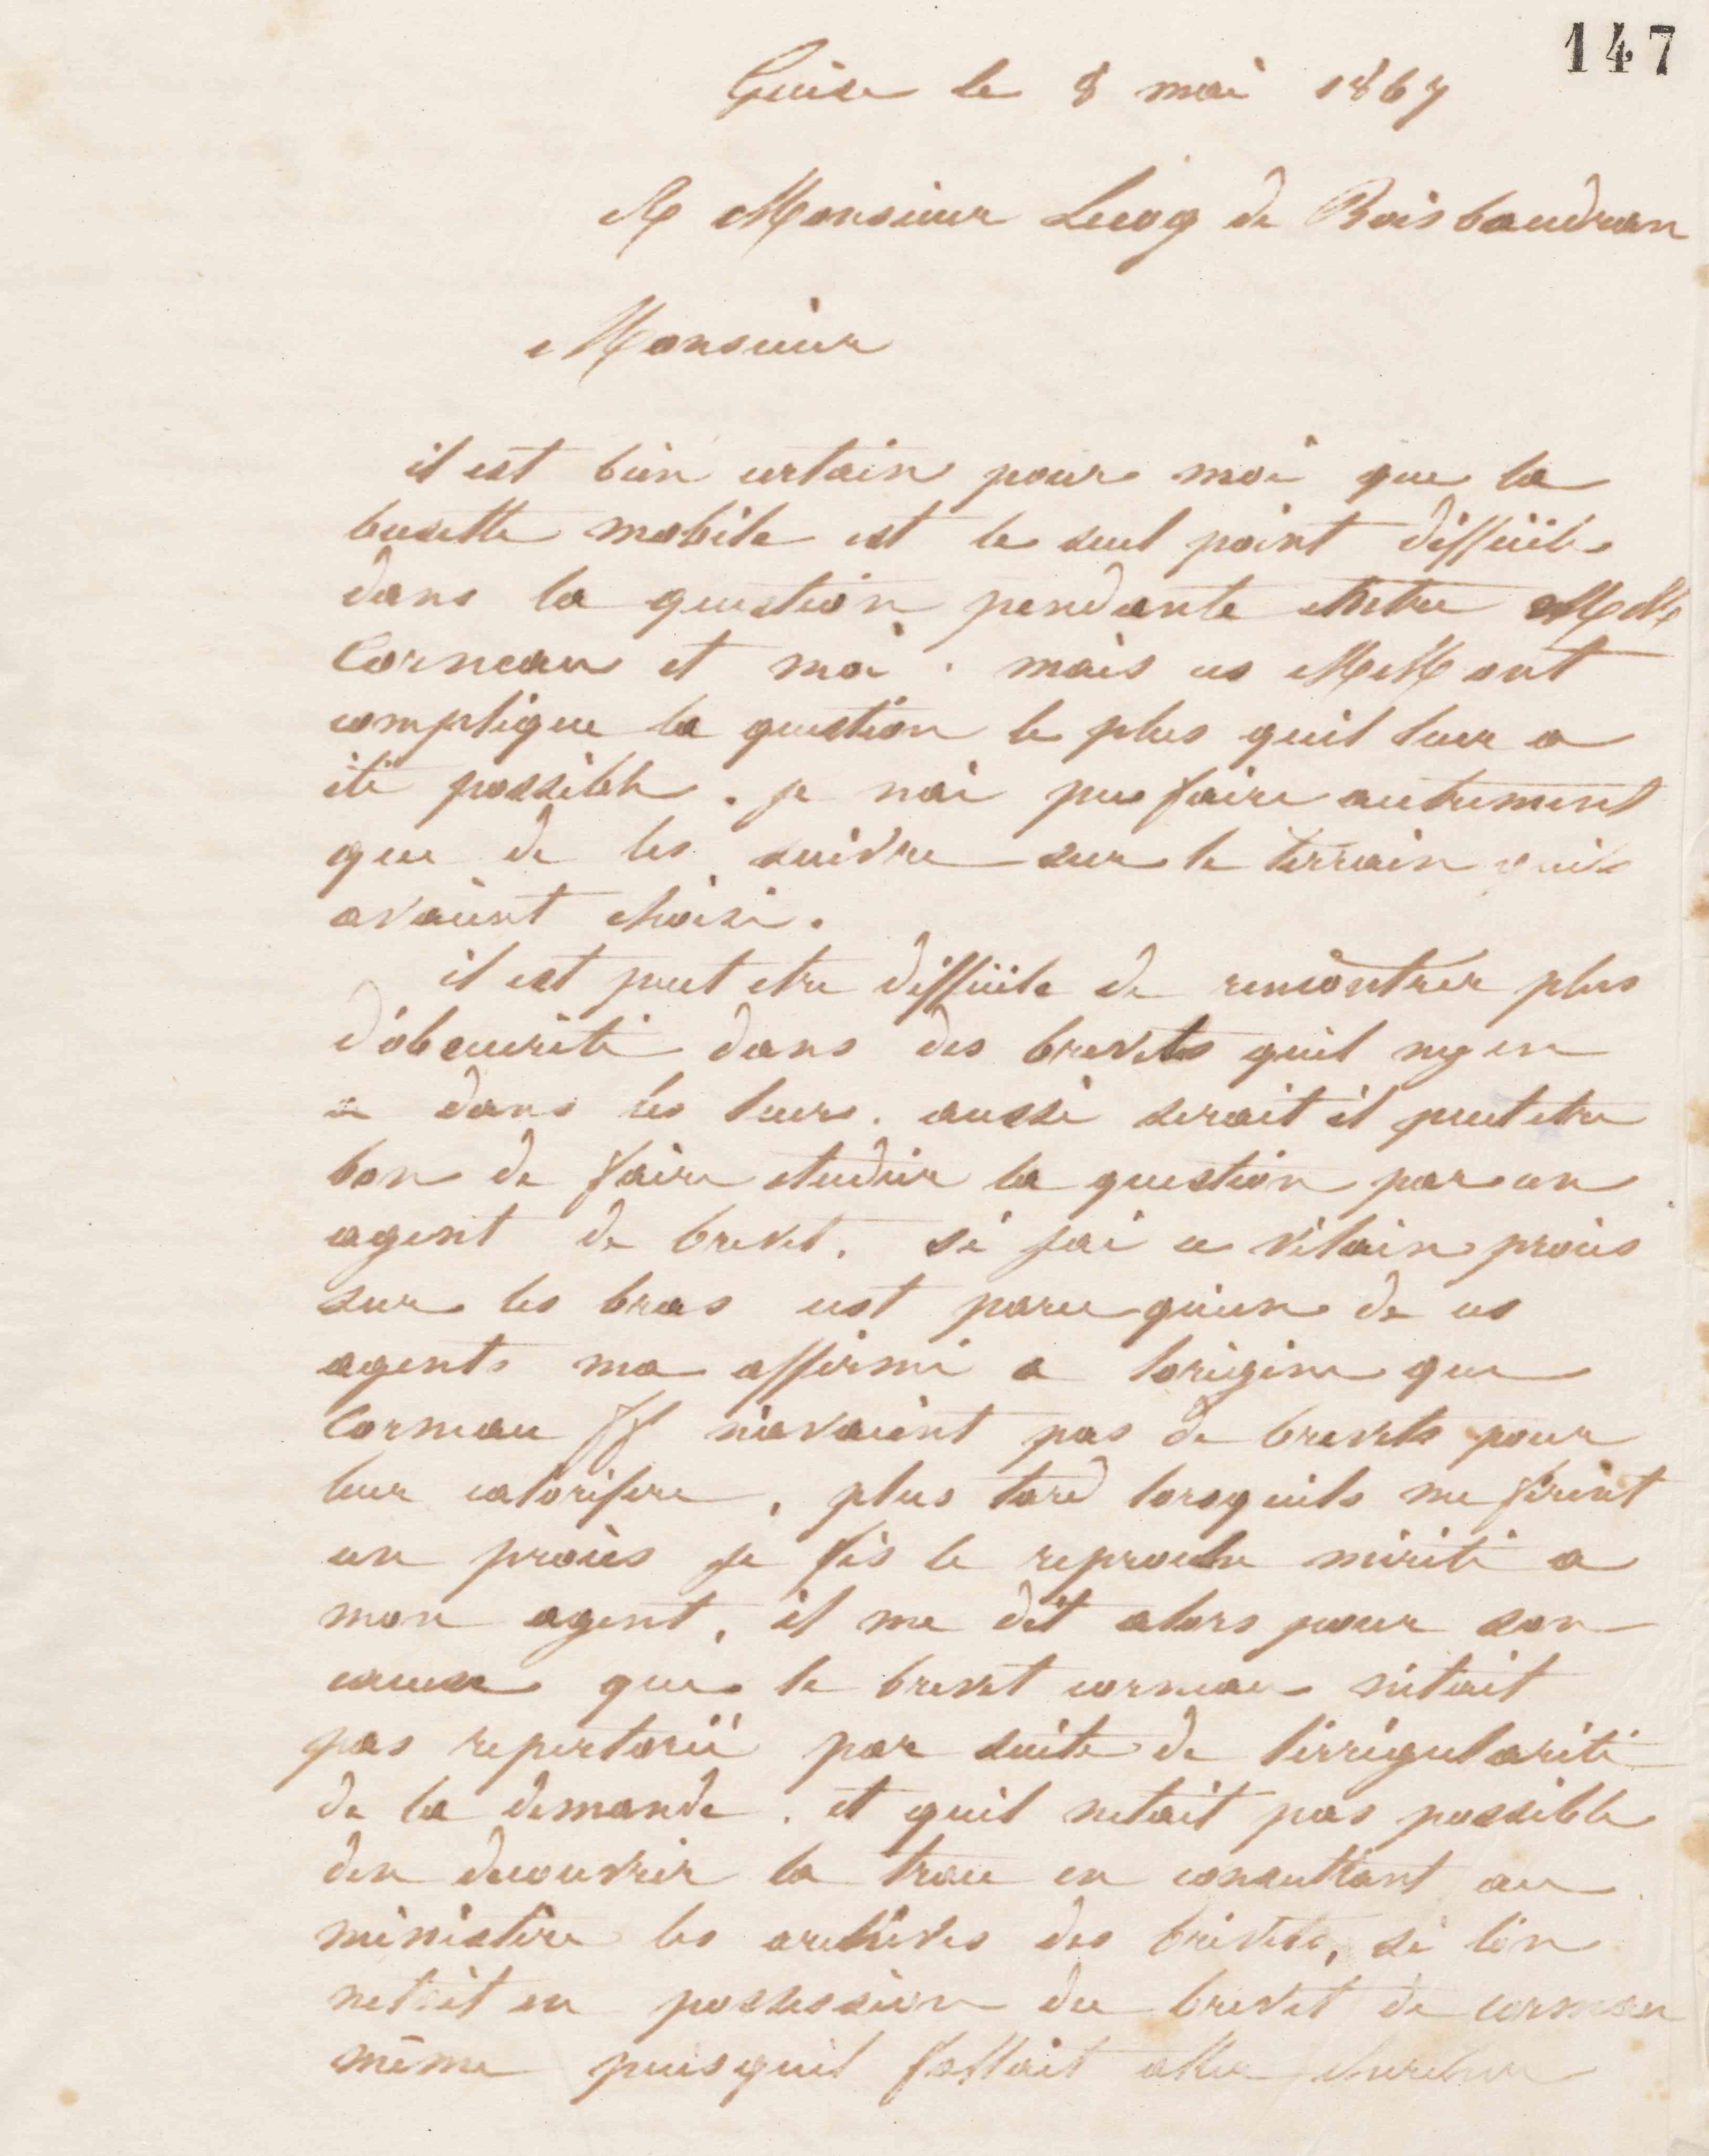 147
Guise le 8 mai 1867
A Monsieur Lecoq de Boisbaudran
Monsieur
il est bien certain pour moi que la
busette mobile est le seul point difficile
dans la question pendante entre MM
Corneau et moi. mais ces MM ont
complique la question le plus quil leur a
été possible. je nai pu faire autrement
que de les suivre sur le terrain quils
avaient choisi.
il est peut etre difficile de rencontrer plus
d'obscurité dans des brevets quil ny en
a dans les leurs. aussi serait il peut etre
bon de faire etudier la question par un
agent de brevet. si jai ce vilain procès
sur les bras cest parce qu'un de ces
agents ma affirmé a lorigine que
Corneau ff n'avaient pas de brevets pour
leur calorifere, plus tard lorsquils me firent
un procès je fis le reproche mérité a
mon agent, il me dit alors pour son
excuse que le brevet corneau nétait
pas repertorié par suite de l'irrégularité
de la demande. et quil netait pas possible
den decouvrir la trace en consultant au
ministère les archives des brevets, si l'on
netait en possession du brevet de corneau
même puisquil fallait aller chercher